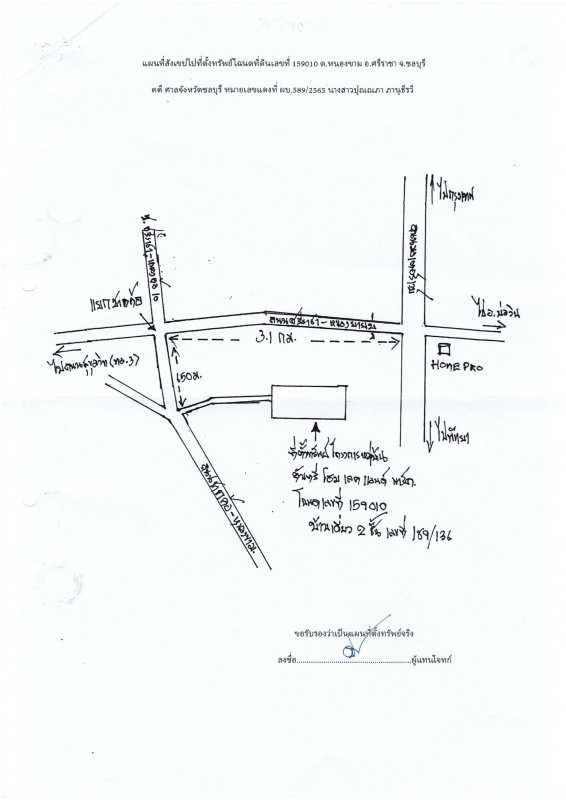 แผนที่สังเขปไปที่ตั้งทรัพย์โฉนดที่ดินเลขที่ 159010 ต.หนองขาม อ.ศรีราชา จ.ชลบุรี
คดี ศาลจังหวัดชลบุรี หมายเลขแดงที่ ผบ.589/2565 นางสาวปุณณภา ภานุธีรวี
ไปกรุงเทพ
ไป อ.บ่อวิน
3.1 กม.
HOMEPRO
ไปถนนสุขุมวิท (ทล.3)
150 ม.
ไปพัทยา
ที่ตั้งทรัพย์ โครงการหมู่บ้าน
คันทรี โฮม เลค แอนด์ พาร์ค
โฉนดเลขที่ 159010
บ้านเดี่ยว 2 ชั้น เลขที่ 189/136
ขอรับรองว่าเป็นแผนที่ตั้งทรัพย์จริง
ลงชื่อ..................................................ผู้แทนโจทก์